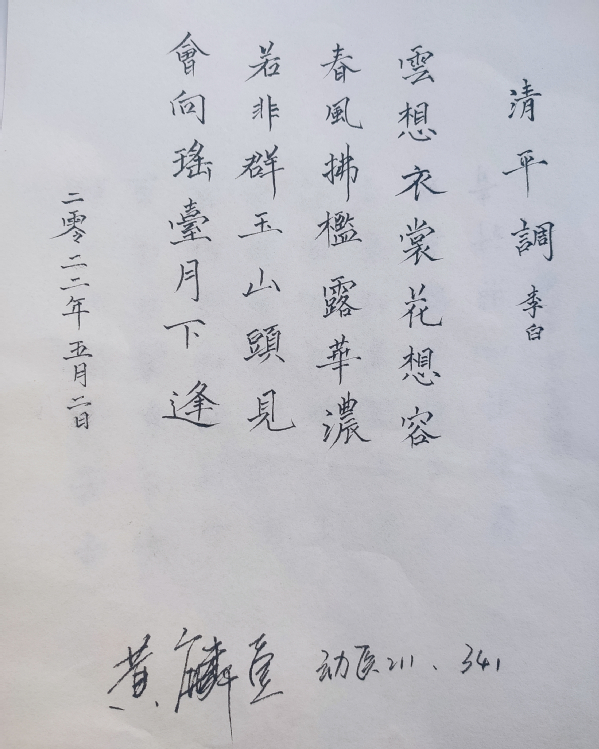 清平調 李白
雲想衣裳花想容
春風拂檻露華濃
若非群玉山頭見
會向瑤臺月下逢
二零二二年五月二日
黄麟 动医211、341